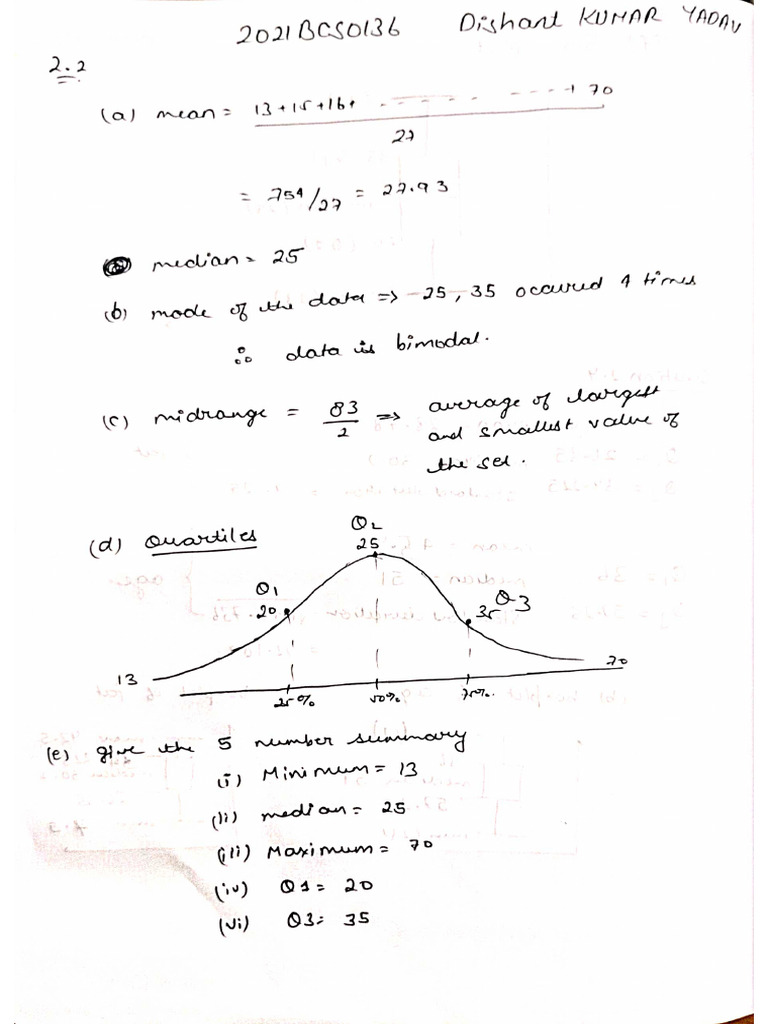 2021BCS0136 Dishant KUMAR YADAV
2.2
(a) mean = 13+15+16+ - - - - - - - - - - + 70
27
= 754/27 = 27.93
median = 25
(b) mode of the data => 25, 35 occured 4 times
∴ data is bimodal.
(c) midrange = 83/2 => average of largest
and smallest value of
the set.
(d) Quartiles
Q2
25
Q1
20
Q3
35
13
70
25% 50% 75%.
(e) give the 5 number summary
(i) Minimum = 13
(ii) median = 25
(iii) Maximum = 70
(iv) Q1 = 20
(vi) Q3 = 35